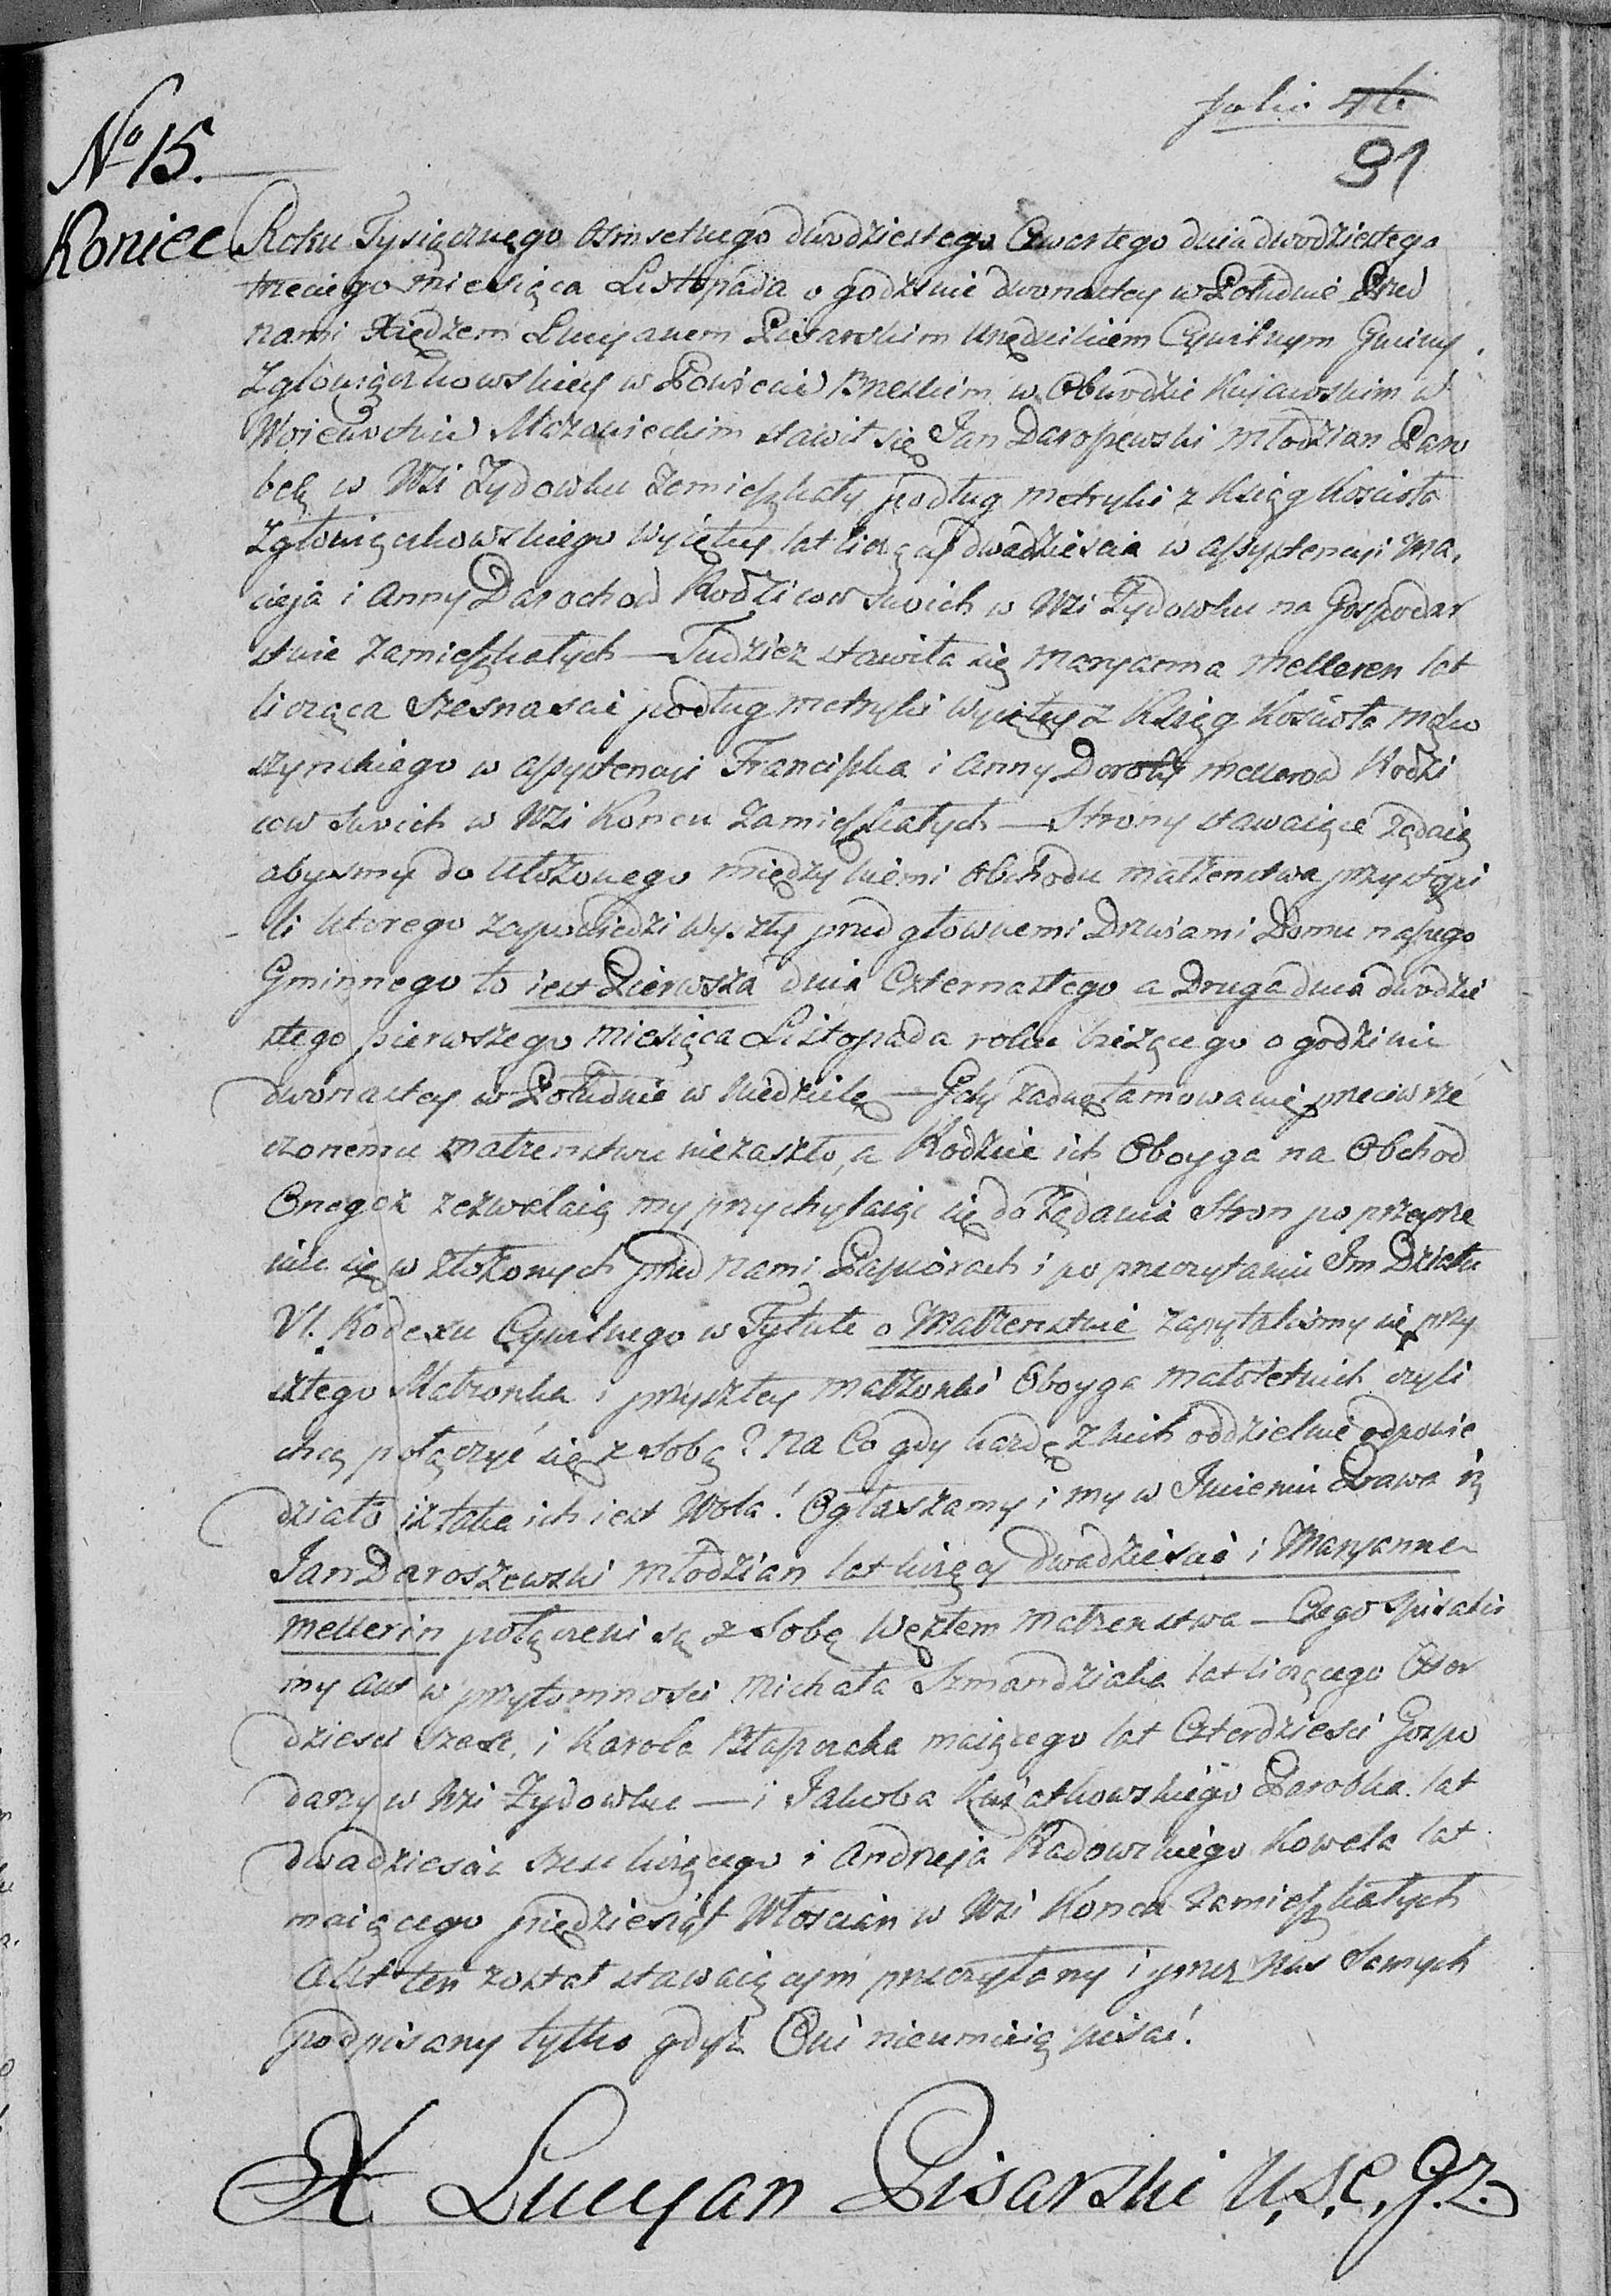 folio 46
91
No 15.
Koniec
Roku Tysiącznego Osmsetnego dwodziestego Czwartego dnia dwodziestego
trzeciego miesiąca Listopada o godzinie dwonastey w Południe Przed
nami Xiędzem Lucyanem Pisarskim Urzędnikiem Cywilnym Gminy
Zgłowiączkowskiey w Powiecie Brzeskim w Obwodzie Kujawskim w
Woiewodztwie Mazowieckim stawił się Jan Daroszewski młodzian Paro
bek w Wsi Zydowku Zamieszkały podług metryki z Ksiąg Kościoła
Zgłowiączkowskiego wyiętey lat liczący dwadzieścia w assystencyi Ma,
cieja i Anny Darochow Rodzicow swoich w Wsi Zydowku na Gospodar
stwie zamieszkałych — Tudziez stawiła się Maryanna Melleren lat
licząca szesnascie podług metryki wyiętey z Ksiąg Kościoła
szynskiego w assystencyi Franciszka i Anny Doroty Mellerow Rodzi
cow swoich w Wsi Koncu Zamieszkałych — Strony stawaiące żądaią
abysmy do ułożonego między niemi Obchodu małżenstwa przystąpi
li ktorego zapowiedzi wyszły przed głownemi Drzwiami Domu naszego
Gminnego to iest Pierwsza dnia Czternastego a Druga dnia dwodzie
stego pierwszego miesiąca Listopada roku bieżącego o godzinie
dwonastey w Południe w Niedzielę — Gdy żadne tamowanie przeciw rze
czonemu małzenstwu niezaszło, a Rodzice ich Oboyga na Obchod
Onegoż zezwalaią my przychylaiąc się do żądania Stron po przeyrze
niu się w złożonych przed nami Papierach i po przeczytaniu Im Działu
VI. Kodexu Cywilnego w Tytule o Małżenstwie zapytalismy się przy
szłego Małzonka i przyszłey małżonki Oboyga małoletnich czyli
chcą połączyć się z sobą? Na Co gdy kazde z nich oddzielnie odpowie
działo iż taka ich iest Wola! Ogłaszamy i my w Imieniu Prawa iż
Jan Daroszewski młodzian lat liczący dwadzieścia i Maryanna
Mellerin połączeni są z sobą węzłem małżenstwa — Czego spisalis
my Akt w przytomności Michała Szmandziaka lat liczącego Czter
dziesci szesc, i Karola maiącego lat Czterdziesci Gospo
darzy w Wsi Zydowku — i Jakoba Kwiatkowskiego Parobka lat
dwadziescia szesc liczącego i Andrzeja Radowskiego Kowala lat
maiącego piędziesiąt Włoscian w Wsi Koncu Zamieszkałych
Akt ten został stawaiącym przeczytany i przez nas samych
podpisany tylko gdyż Oni nieumieią pisać!
X Lucyan Pisarski U. S. C. G. Z.